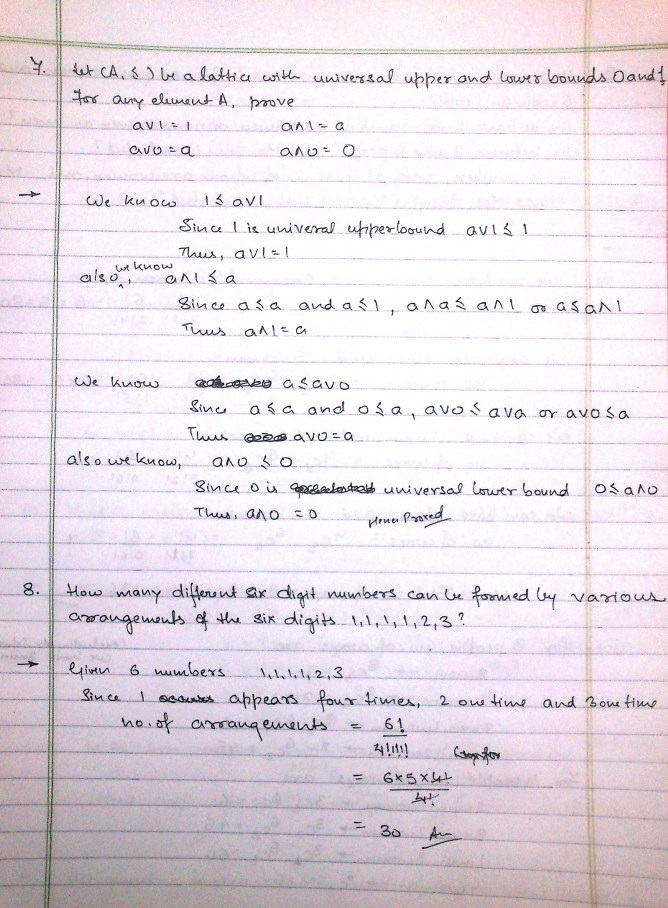 7. Let (A, ≤) be a lattice with universal upper and lower bounds 0 and 1.
For any element A, prove
a∨1 = 1 a∧1 = a
a∨0 = a a∧0 = 0
→ We know 1 ≤ a∨1
Since 1 is univeral upperbound a∨1 ≤ 1
Thus, a∨1 = 1
also, we know a∧1 ≤ a
Since a ≤ a and a ≤ 1, a∧a ≤ a∧1 or a ≤ a∧1
Thus a∧1 = a
We know a ≤ a∨0
Since a ≤ a and 0 ≤ a, a∨0 ≤ a∨a or a∨0 ≤ a
Thus a∨0 = a
also we know, a∧0 ≤ 0
Since 0 is universal lower bound 0 ≤ a∧0
Thus, a∧0 = 0 Hence Proved
8. How many different six digit numbers can be formed by various
arrangements of the six digits 1,1,1,1,2,3?
→ Given 6 numbers 1,1,1,1,2,3
Since 1 appears four times, 2 one time and 3 one time
no. of arrangements = 6!
4!1!1!
= 6×5×4!
4!
= 30 Ans